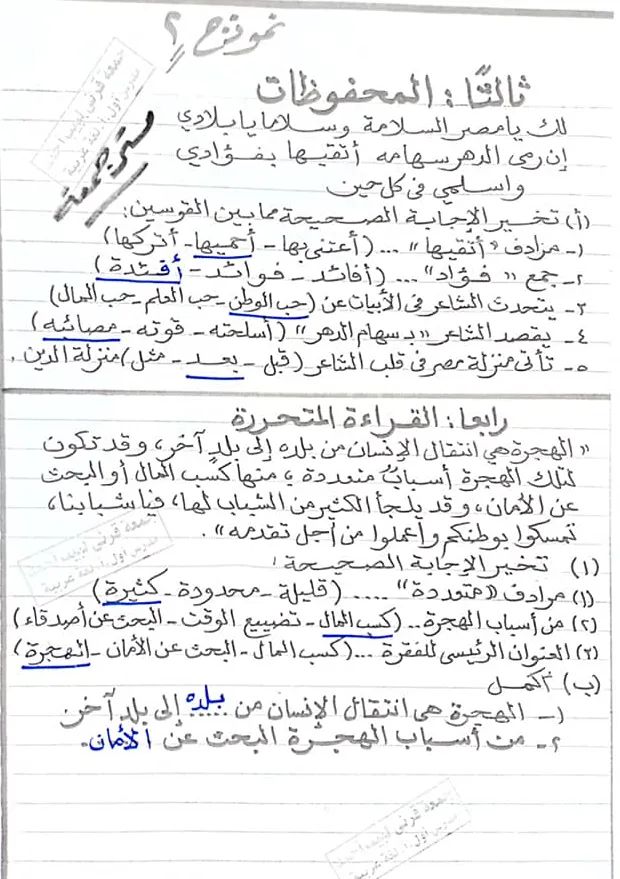 نموذج ٢
جمعه قرني لبيب
مدرس أول . لغة عربية
مستر جمعه
ثالثًا : المحفوظات
لك يا مصر السلامة وسلاما يا بلادي
إن رمى الدهر سهامه أتقيها بفؤادي
واسلمي في كل حين
(أ) تخير الإجابة الصحيحة مما بين القوسين :
١- مرادف "أتقيها" ... (أعتنى بها - أحميها - أتركها)
٢- جمع "فؤاد" ... (أفائد - فوائد - أفئدة)
٣- يتحدث الشاعر في الأبيات عن (حب الوطن - حب العلم - حب المال)
٤- يقصد الشاعر "بسهام الدهر" (أسلحته - قوته - مصائبه)
٥- تأتى منزلة مصر فى قلب الشاعر (قبل - بعد - مثل) منزلة الدين .
رابعا : القراءة المتحررة
"الهجرة هي انتقال الإنسان من بلده إلى بلدٍ آخر ، وقد تكون
لتلك الهجرة أسباب متعددة ؛ منها كسب المال أو البحث
عن الأمان ، وقد يلجأ الكثير من الشباب لها ، فيا شبابنا ،
تمسكوا بوطنكم واعملوا من أجل تقدمه" .
جمعه قرني لبيب
مدرس أول . لغة عربية
(١) تخير الإجابة الصحيحة :
(١) مرادف "متعددة" .... (قليلة - محدودة - كثيرة)
(٢) من أسباب الهجرة .. (كسب المال - تضييع الوقت - البحث عن أصدقاء)
(٣) العنوان الرئيسى للفقرة ... (كسب المال - البحث عن الأمان - الهجرة)
(ب) أكمل
١- الهجرة هى انتقال الإنسان من بلده إلى بلدٍ آخر.
٢- من أسباب الهجرة البحث عن الأمان.
جمعه قرني لبيب
مدرس أول . لغة عربية